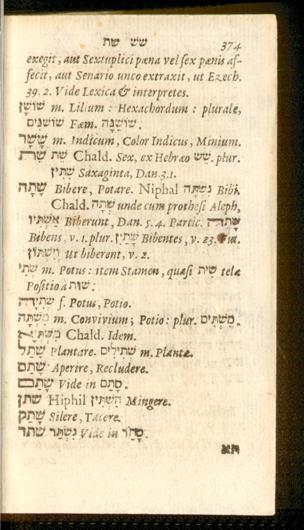 שש שת 374
exegit, aut Sextuplici pæna vel sex pænis af-
fecit, aut Senario unco extraxit, ut Ezech.
39. 2. Vide Lexica & interpretes.
שׁוֹשָׁן m. Lilium : Hexachordum : plurale,
שׁוֹשַׁנִּים Fæm. שׁוֹשַׁנָּה :
שָׁשֵׁר m. Indicum, Color Indicus, Minium.
שֵׁת Chald. Sex, ex Hebræo שש. plur.
שִׁתִּין Saxaginta, Dan. 3. 1.
שָׁתָה Bibere, Potare. Niphal נִשְׁתָּה Bibi,
Chald. שְׁתָה unde cum prothesi Aleph,
אִשְׁתִּיו Biberunt, Dan. 5. 4. Partic.
Bibens, v. 1. plur. שָׁתַיִן Bibentes, v. 23.
וְיִשְׁתּוֹן Ut biberent, v. 2.
שְׁתִי m. Potus : item Stamen, quasi שִׁית telæ
Positio à שׁוּת :
שְׁתִיָּה f. Potus, Potio.
מִשְׁתֶּה m. Convivium; Potio : plur. מִשְׁתִּים.
Chald. Idem.
שָׁתַל Plantare. שְׁתִילִים m. Plantæ.
שָׁתַם Aperire, Recludere.
שָׂתַם Vide in סָתַם.
שתן Hiphil הִשְׁתִּין Mingere.
שָׁתַק Silere, Tacere.
שתר נִשְׂתַּר Vide in סָתַר.
תא